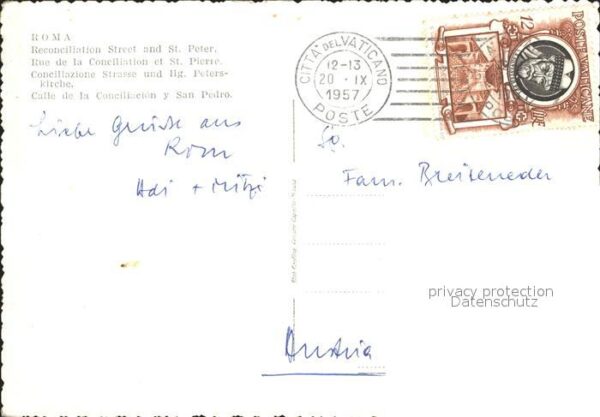 ROMA
Reconciliation Street and St. Peter.
Rue de la Conciliation et St. Pierre.
Conciliazione Strasse und Hg. Peters-
kirche.
Calle de la Conciliación y San Pedro.
CITTA' DEL VATICANO
12-13
20 · IX
1957
POSTE
POSTE VATICANE
12
LIRE
Liebe Grüße aus
Rom
Adi + Mitzi
Fam. Breiteneder
privacy protection
Datenschutz
Austria